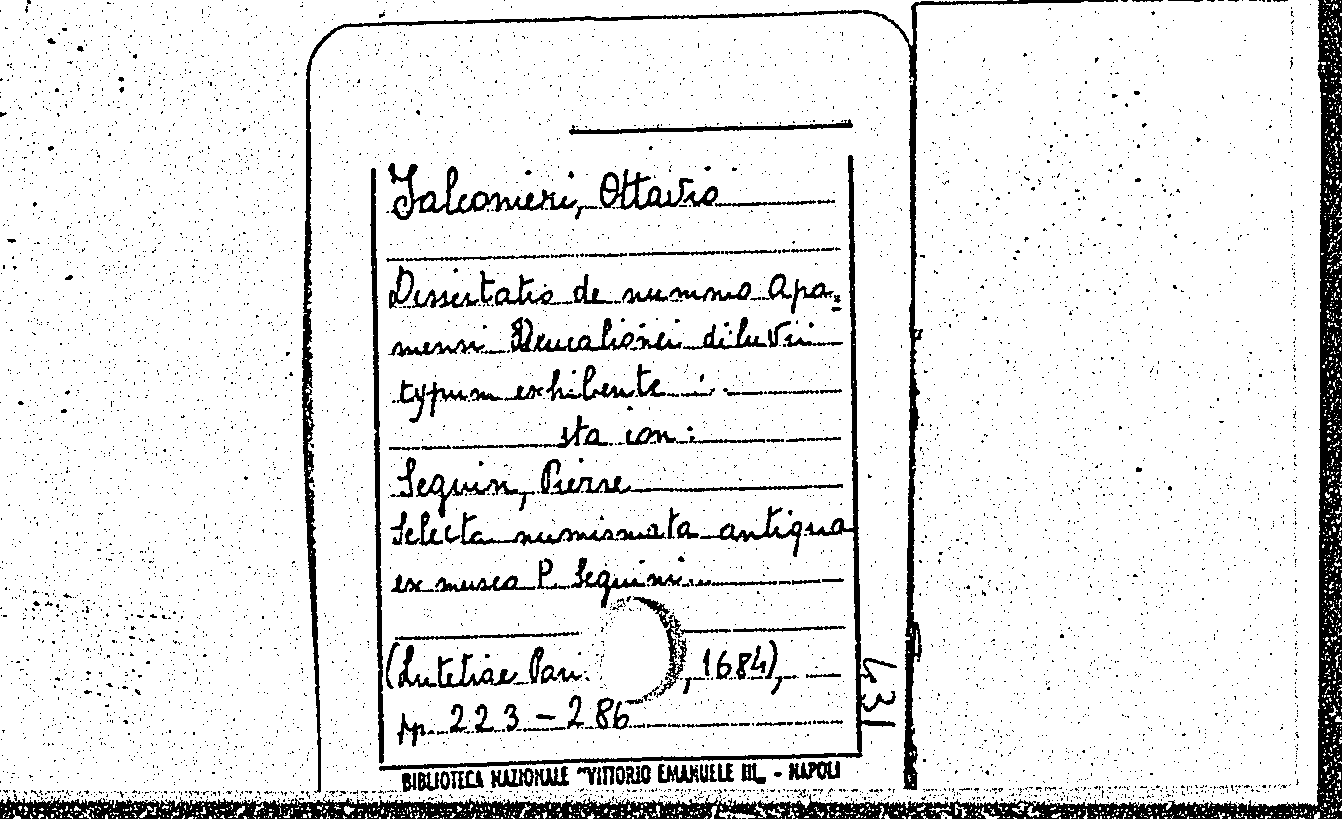 Falconieri, Ottavio
Dissertatio de nummo Apa=
mensi Deucalionei diluvii
typum exhibente :.
sta con:
Seguin, Pierre
Selecta numismata antiqua
ex museo P. Seguini...
(Lutetiae Pari. , 1684),
pp. 223-286
431
BIBLIOTECA NAZIONALE "VITTORIO EMANUELE III„ - NAPOLI